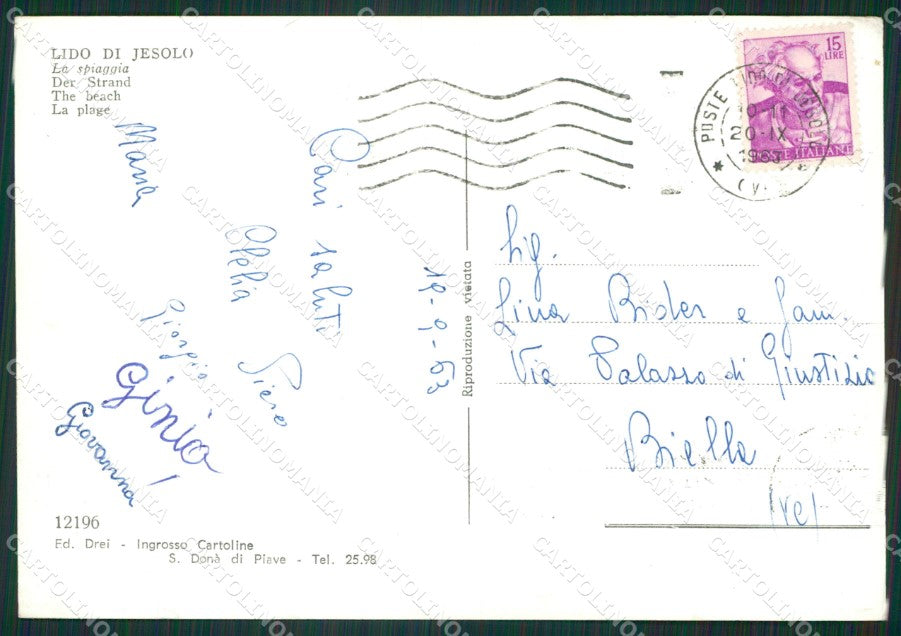 LIDO DI JESOLO
La spiaggia
Der Strand
The beach
La plage
15
LIRE
POSTE ITALIANE
POSTE LIDO DI JESOLO
10-11
20·IX
1963
(V
Cari saluti
19-9-63
Piero
Clelia
Maria
Giorgio
Ginio
Giovanna
Sig.
Lina Bider e fam.
Via Palazzo di Giustizia
Biella
(Vc)
Riproduzione vietata
12196
Ed. Drei - Ingrosso Cartoline
S. Donà di Piave - Tel. 25.98
CARTOLINOMANIA